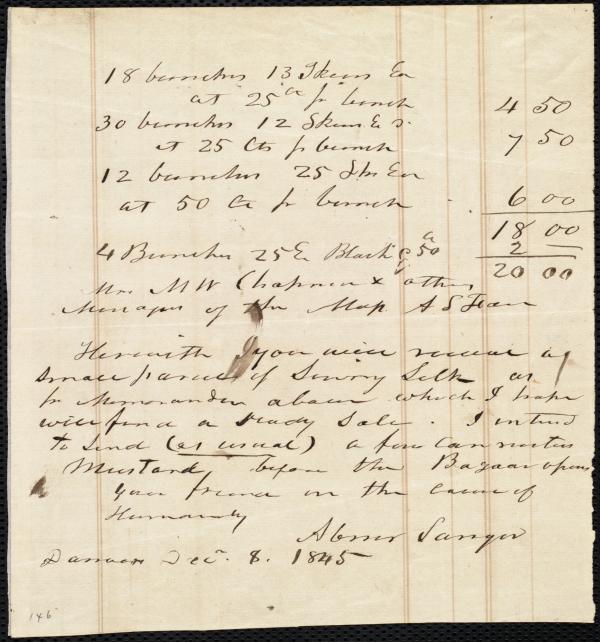 18 bunches 13 Skeins Ea
at 25 Cts pr bunch 4 50
30 bunches 12 Skeins Ea
at 25 Cts pr bunch 7 50
12 bunches 25 Sks Ea
at 50 Cts pr bunch 6 00
18 00
4 Bunches 25 Ea Black @ 50 2
20 00
Mrs M W Chapman & others
Managers of the Mass. A S Fair
Herewith you will receive a
small parcel of Sewing Silk as
pr Memorandum above which I hope
will find a ready Sale. I intend
to Send (as usual) a few cannisters
Mustard, before the Bazaar opens
your friend in the cause of
Humanity
Abner Sanger
Danvers Dec. 8. 1845
146